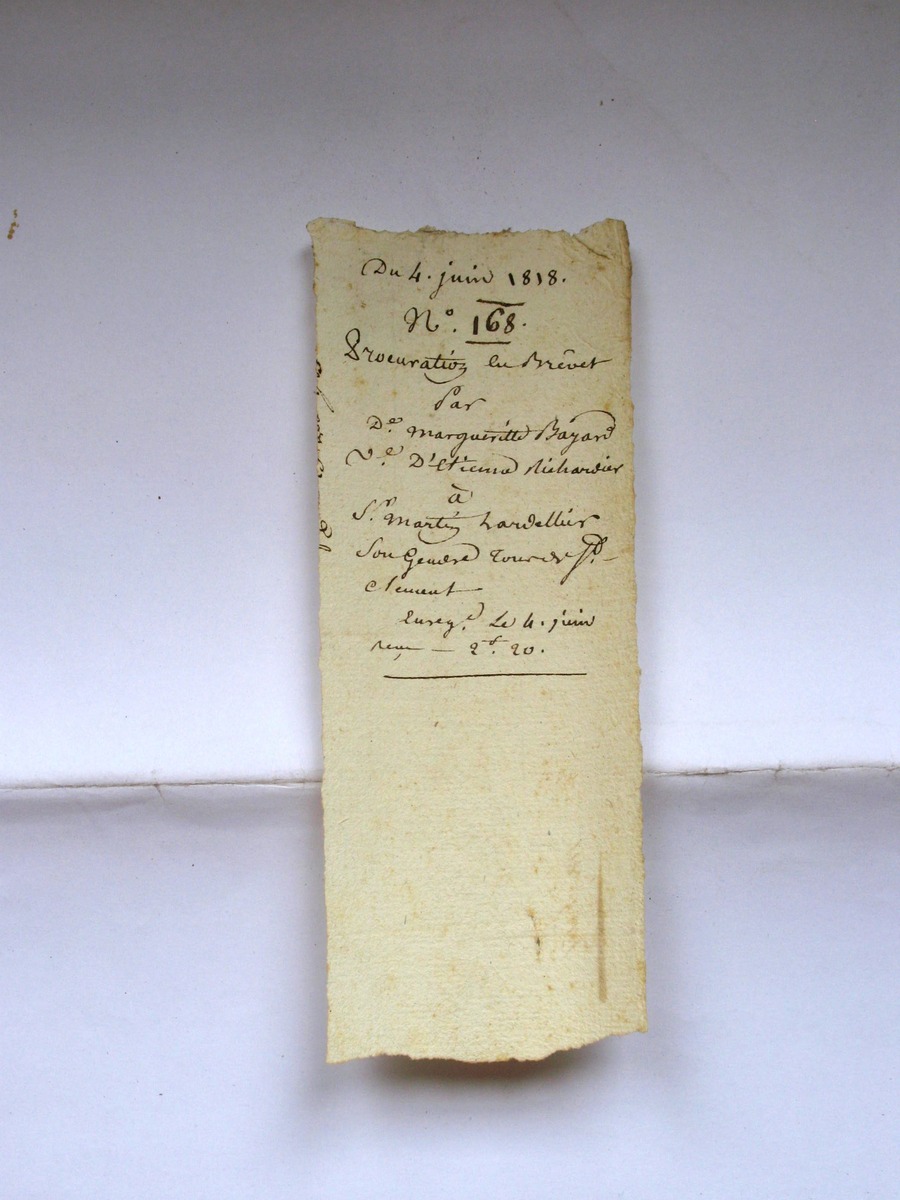 Du 4. juin 1818.
N.º 168.
Procuration en Brévet
Par
D.e marguéritte Bayard
V.e D'étienne Richardier
à
S.r martin hardellier
Son Gendre tous de St.
clement
Enreg.é Le 4. juin
reçu — 2.f 20.